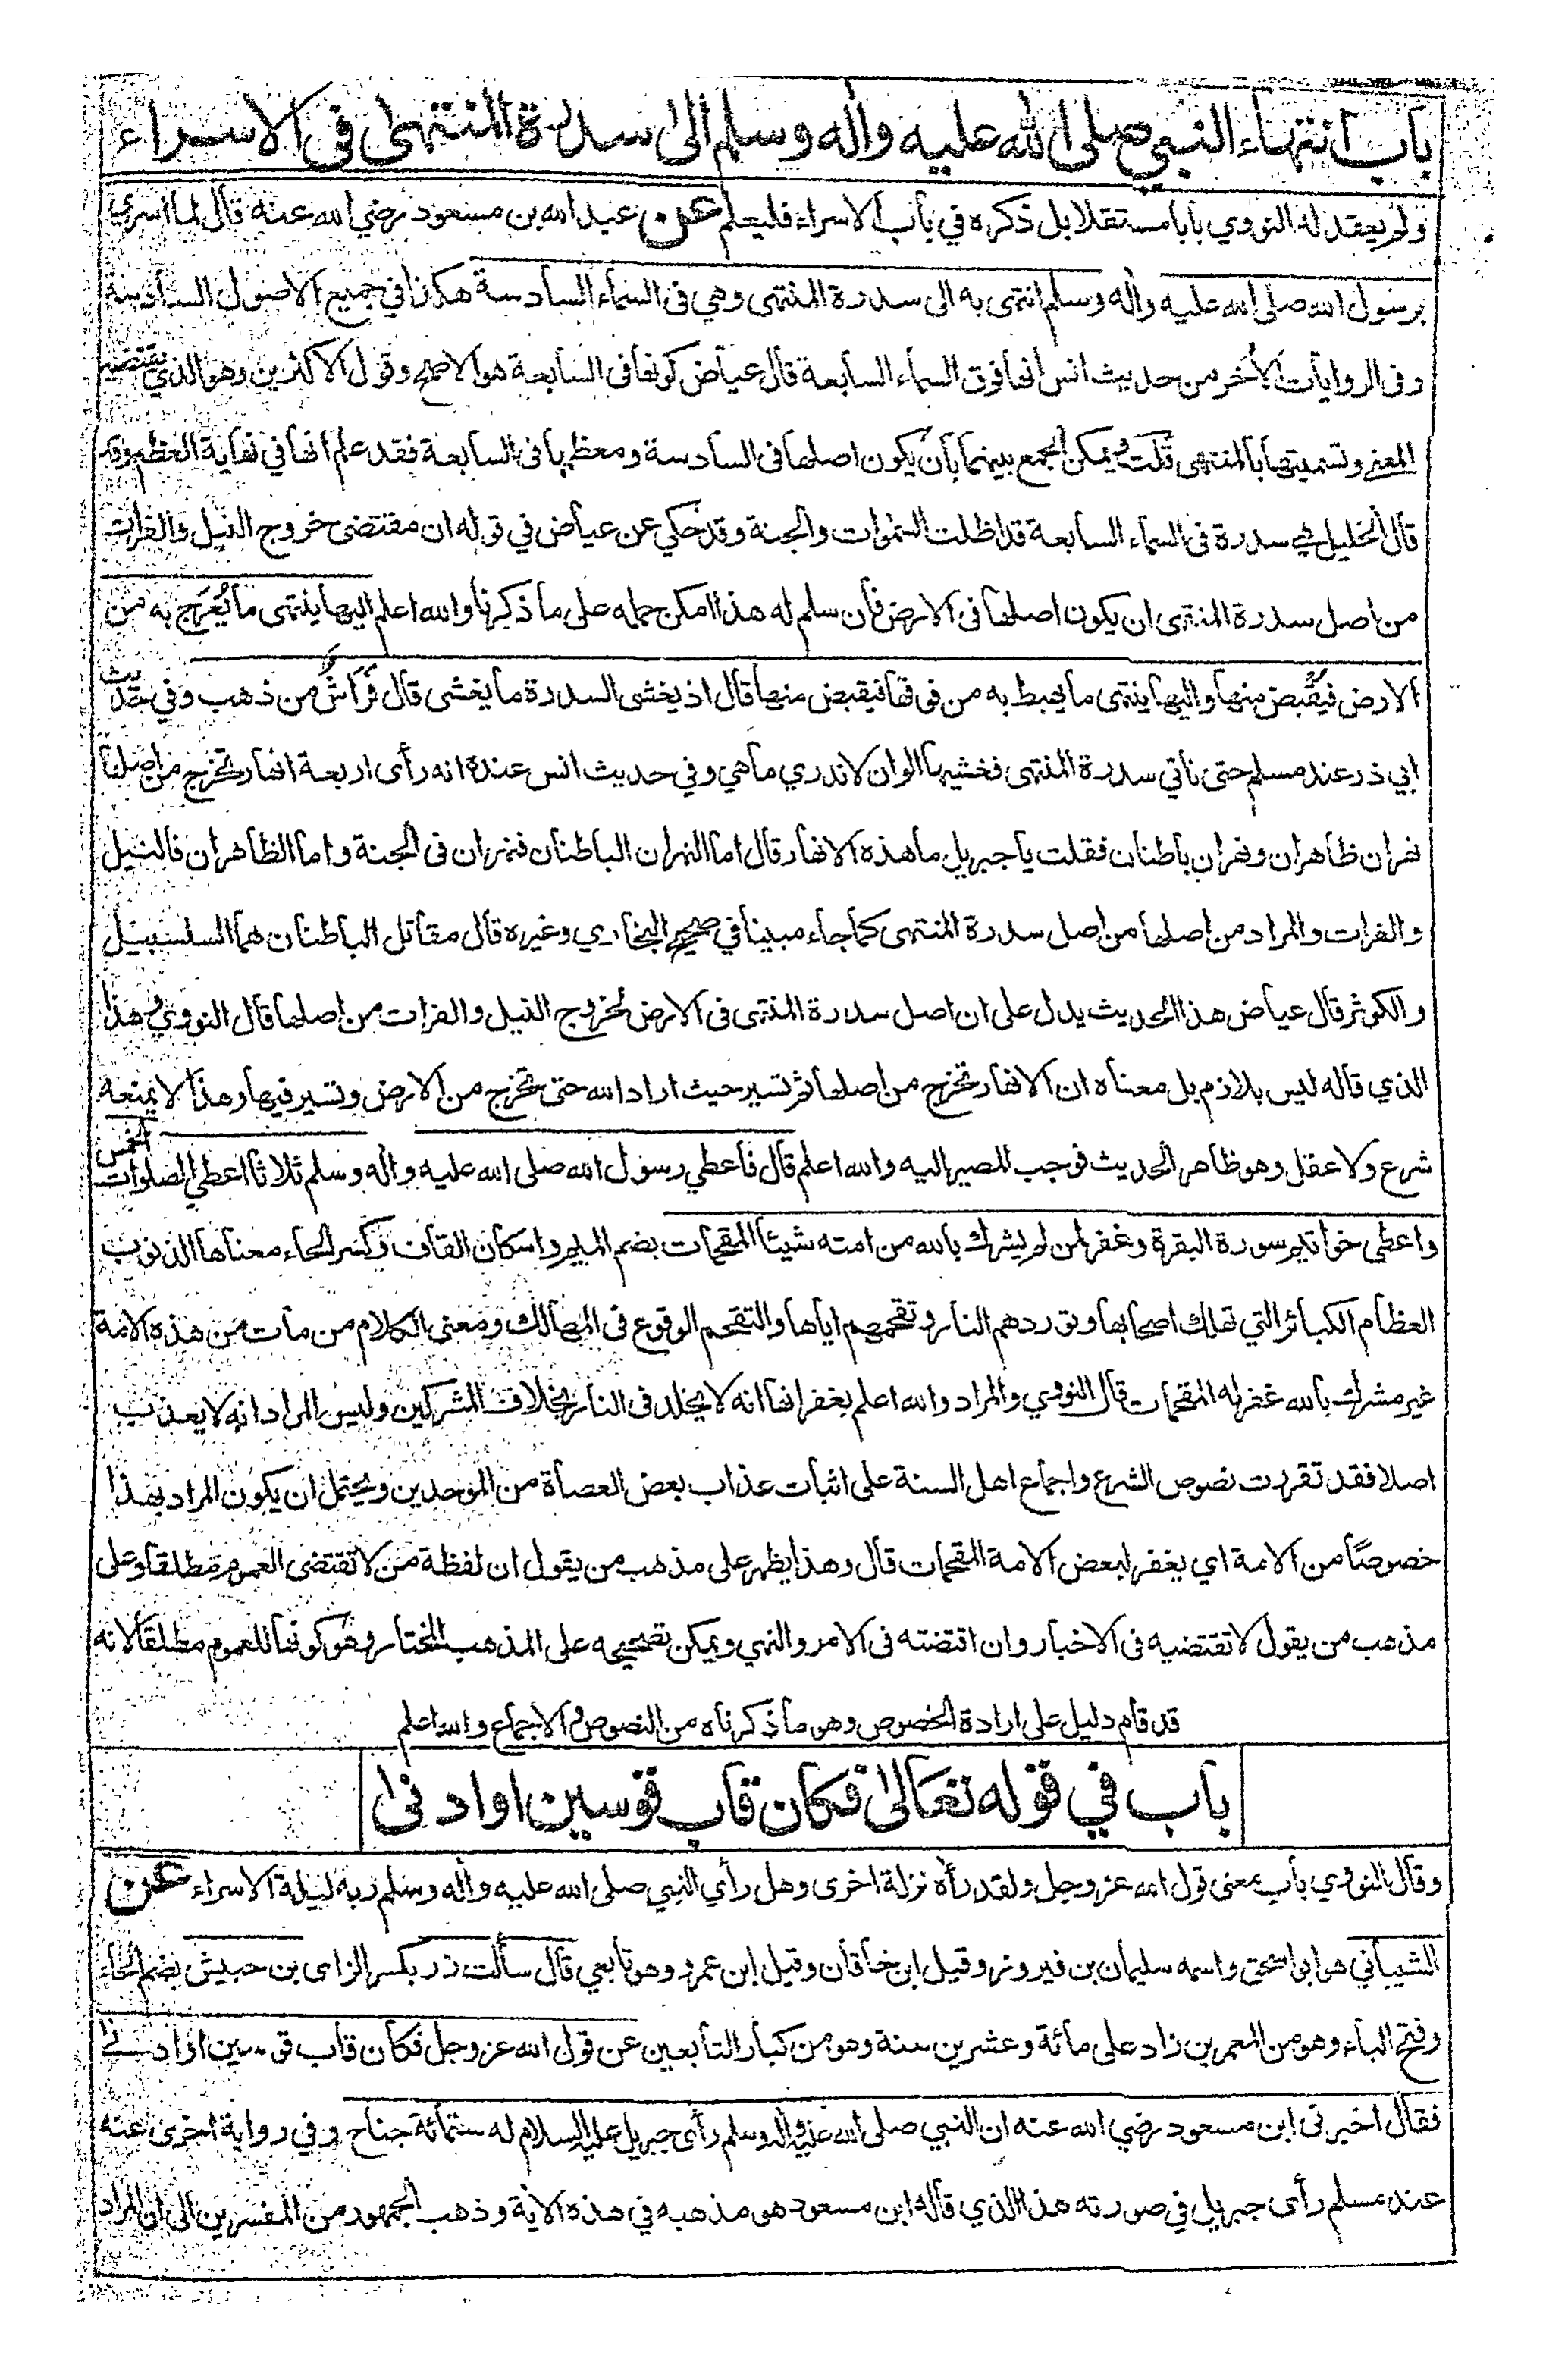 باب انتهاء النبي صلى الله عليه واله وسلم الى سدرة المنتهى فى الاسراء
ولم يعقد له النووي بابا مستقلا بل ذكره في باب الاسراء فليعلم عن عبد الله بن مسعود رضي الله عنه قال لما اسري
برسول الله صلى الله عليه واله وسلم انتهى به الى سدرة المنتهى وهي فى السماء السادسة هكذا في جميع الاصول السادسة
وفى الروايات الأخر من حديث انس انها فوق السماء السابعة قال عياض كونها فى السابعة هو الاصح وقول الاكثرين وهو الذي يقتضيه
المعنى وتسميتها بالمنتهى قلت ويمكن الجمع بينهما بأن يكون اصلها فى السادسة ومعظمها فى السابعة فقد علم انها في نهاية العظم وقد
قال الخليل هي سدرة فى السماء السابعة قد اظلت السموات والجنة وقد حكي عن عياض في قوله ان مقتضى خروج النيل والفرات
من اصل سدرة المنتهى ان يكون اصلها فى الارض فان سلم له هذا امكن حمله على ما ذكرنا والله اعلم اليها ينتهى ما يُعرَج به من
الارض فيُقبض منها واليها ينتهى ما يهبط به من فوقها فيقبض منها قال اذ يغشى السدرة ما يغشى قال فَرَاشٌ من ذهب وفي حديث
ابي ذر عند مسلم حتى نأتي سدرة المنتهى فغشيها الوان لا ندري ما هي وفي حديث انس عنده انه رأى اربعة انهار تخرج من اصلها
نهران ظاهران ونهران باطنان فقلت يا جبريل ما هذه الانهار قال اما النهران الباطنان فنهران فى الجنة واما الظاهران فالنيل
والفرات والمراد من اصلها من اصل سدرة المنتهى كما جاء مبينا في صحيح البخاري وغيره قال مقاتل الباطنان هما السلسبيل
والكوثر قال عياض هذا الحديث يدل على ان اصل سدرة المنتهى فى الارض لخروج النيل والفرات من اصلها قال النووي وهذا
الذي قاله ليس بلازم بل معناه ان الانهار تخرج من اصلها ثم تسير حيث اراد الله حتى تخرج من الارض وتسير فيها وهذا لا يمنعه
شرع ولا عقل وهو ظاهر الحديث فوجب المصير اليه والله اعلم قال فأعطي رسول الله صلى الله عليه واله وسلم ثلاثا اعطي الصلوات الخمس
واعطى خواتيم سورة البقرة وغفر لمن لم يشرك بالله من امته شيئا المقحمات بضم الميم واسكان القاف وكسر الحاء معناها الذنوب
العظام الكبائر التي تهلك اصحابها وتوردهم النار وتقحمهم اياها والتقحم الوقوع فى المهالك ومعنى الكلام من مات من هذه الامة
غير مشرك بالله غفر له المقحمات قال النووي والمراد والله اعلم بغفرانها انه لا يخلد فى النار بخلاف المشركين وليس المراد انه لا يعذب
اصلا فقد تقررت نصوص الشرع واجماع اهل السنة على اثبات عذاب بعض العصاة من الموحدين ويحتمل ان يكون المراد بهذا
خصوصًا من الامة اي يغفر لبعض الامة المقحمات قال وهذا يظهر على مذهب من يقول ان لفظة من لا تقتضى العموم مطلقا وعلى
مذهب من يقول لا تقتضيه فى الاخبار وان اقتضته فى الامر والنهي ويمكن تصحيحه على المذهب المختار وهو كونها للعموم مطلقا لانه
قد قام دليل على ارادة الخصوص وهو ما ذكرناه من النصوص والاجماع والله اعلم
باب في قوله تعالى فكان قاب قوسين او ادنى
وقال النووي باب معنى قول الله عز وجل ولقد رأه نزلة اخرى وهل رأي النبي صلى الله عليه واله وسلم ربه ليلة الاسراء عن
الشيباني هو ابو اسحق واسمه سليمان بن فيروز وقيل ابن خاقان وقيل ابن عمرو وهو تابعي قال سألت زر بكسر الزاى بن حبيش بضم الحاء
وفتح الباء وهو من المعمرين زاد على مائة وعشرين سنة وهو من كبار التابعين عن قول الله عز وجل فكان قاب قوسين او ادنى
فقال اخبرنى ابن مسعود رضي الله عنه ان النبي صلى الله عليه واله وسلم رأى جبريل عليه السلام له ستمائة جناح وفي رواية اخرى عنه
عند مسلم رأى جبريل في صورته هذا الذي قاله ابن مسعود هو مذهبه في هذه الاية وذهب الجمهور من المفسرين الى ان المراد